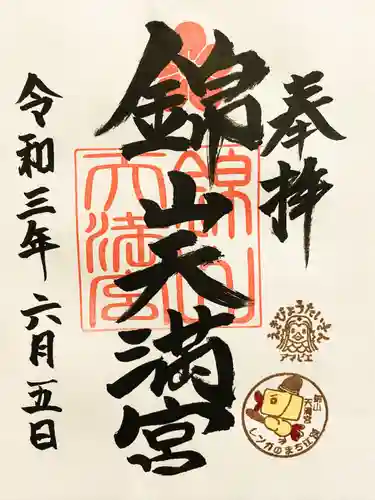 奉拝
錦山天満宮
令和三年 六月五日
錦山
天満宮
えきびょうたいさん
アマビエ
錦山
天満宮
レンガのまち江別